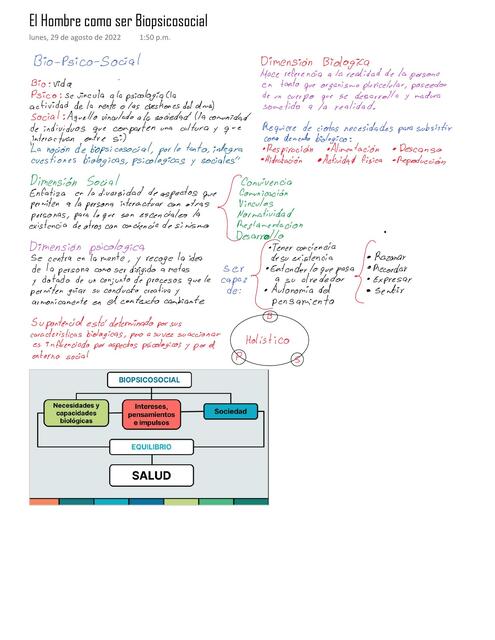 El Hombre como ser Biopsicosocial
lunes, 29 de agosto de 2022 1:50 p.m.
Bio-Psico-Social
Bio: vida
Psico: se vincula a la psicología (la
actividad de la mente o las cuestiones del alma)
Social: Aquello vinculado a la sociedad (la comunidad
de individuos que comparten una cultura y que
interactúan entre sí)
"La noción de biopsicosocial, por lo tanto, integra
cuestiones biológicas, psicológicas y sociales"
Dimensión Biologica
Hace referencia a la realidad de la persona
en tanto que organismo pluricelular, poseedor
de un cuerpo que se desarrolla y madura
sometido a la realidad.
Requiere de ciertas necesidades para subsistir
como elemento biologico:
•Respiración •Alimentación •Descanso
•Hidratación •Actividad física •Reproducción
Dimensión Social
Enfatiza en la diversidad de aspectos que
permiten a la persona interactuar con otras
personas, para lo que son esenciales la
existencia de otros con conciencia de si mismo
Convivencia
Comunicación
Vinculos
Normatividad
Reglamentacion
Desarrollo
Dimensión psicologica
Se centra en la mente, y recoge la idea
de la persona como ser dirigido a metas
y dotado de un conjunto de procesos que le
permiten guiar su conducta creativa y
armonicamente en el contexto cambiante
ser
capaz
de:
•Tener conciencia
de su existencia
•Entender lo que pasa
a su alrededor
•Autonomia del
pensamiento
• Razonar
• Recordar
• Expresar
• Sentir
Su potencial está determinado por sus
características biologicas, pero a su vez su accionar
es influenciado por aspectos psicologicos y por el
entorno social
B
Holistico
P
S
BIOPSICOSOCIAL
Necesidades y
capacidades
biológicas
Intereses,
pensamientos
e impulsos
Sociedad
EQUILIBRIO
SALUD